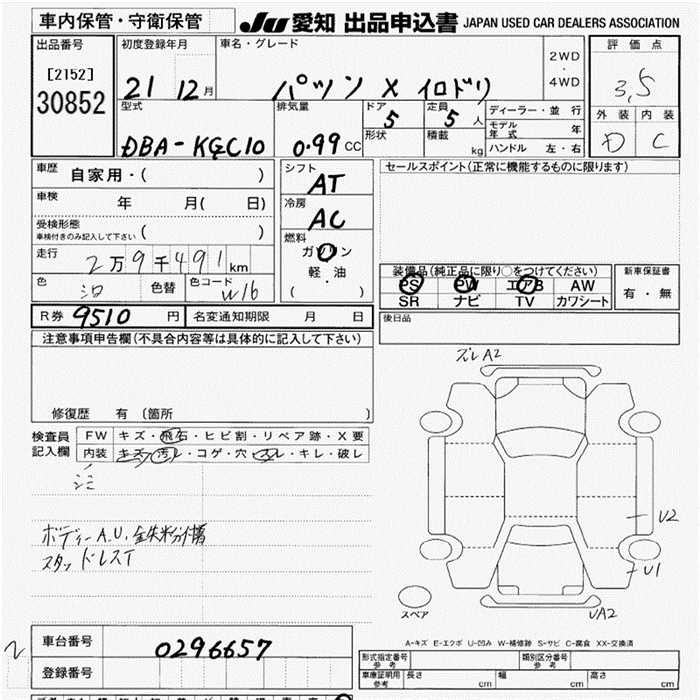 車内保管・守衛保管 JU 愛知 出品申込書 JAPAN USED CAR DEALERS ASSOCIATION
出品番号 初度登録年月 車名・グレード 2WD・4WD 評価点
[2152]
30852 21 12月 パッソ X イロドリ 3.5
型式 排気量 ドア 定員 ディーラー・並行 外装 内装
DBA-KGC10 0.99 CC 5 5人 モデル年式 年 D C
形状 積載 kg ハンドル 左・右
車歴 自家用・( ) シフト AT セールスポイント(正常に機能するものに限ります)
車検 年 月( 日) 冷房 AC
受検形態 ( )
車検付きのみ記入して下さい
燃料 ガソリン・軽油 ( )
走行 2万9千491km
装備品(純正品に限り○をつけてください) 新車保証書
色 シロ 色替 色コード W16 PS PW エアB AW 有・無
SR ナビ TV カワシート
R券 9510円 名変通知期限 月 日 後日品
注意事項申告欄(不具合内容等は具体的に記入して下さい)
ズレA2
修復歴 有 (箇所 )
検査員記入欄 FW キズ・飛石・ヒビ割・リペア跡・X要
内装 キズ・汚レ・コゲ・穴・スレ・キレ・破レ
シミ
U2
ボディーA.U.鉄粉付着
スタッドレスT
U1
スペア UA2
車台番号 0296657
A-キズ E-エクボ U-凹み W-補修跡 S-サビ C-腐食 XX-交換済
登録番号
形式指定番号 参考 類別区分番号 参考
車庫証明用 参考 長さ cm 幅 cm 高さ cm